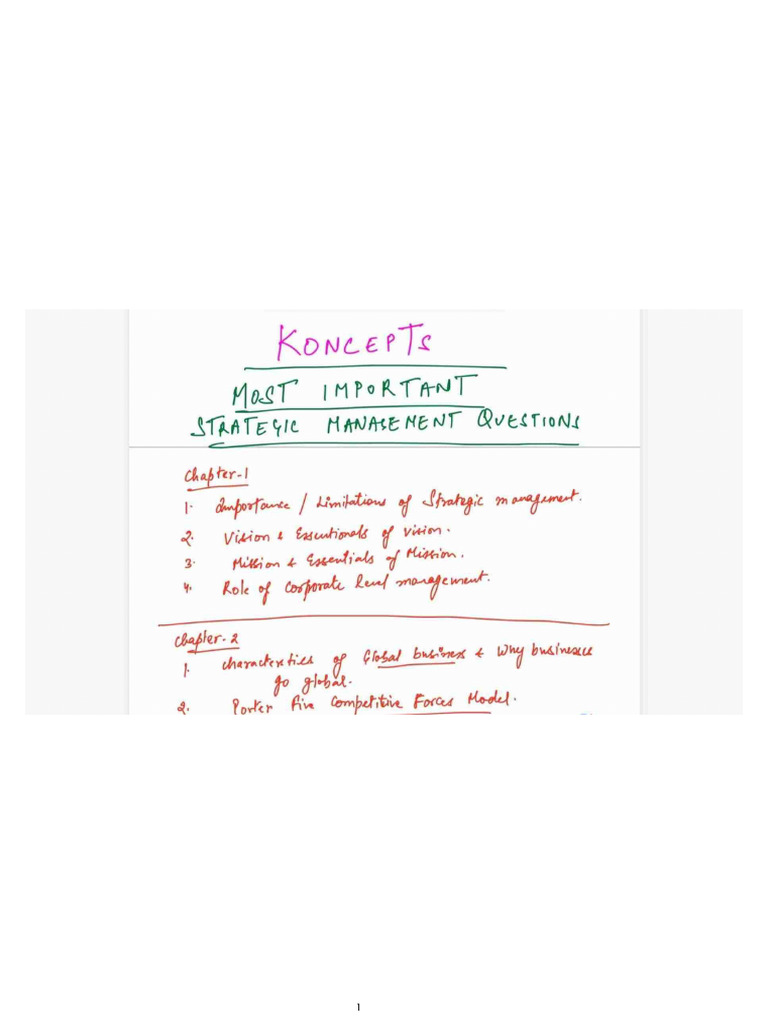 KONCEPTS
MOST IMPORTANT
STRATEGIC MANAGEMENT QUESTIONS
Chapter-1
1. Importance / Limitations of Strategic management.
2. Vision & Essentionals of vision.
3. Mission & Essentials of Mission.
4. Role of Corporate level management.
Chapter-2
1. Characterstics of Global business & Why businesses
go global.
2. Porter five Competitive Forces Model.
1